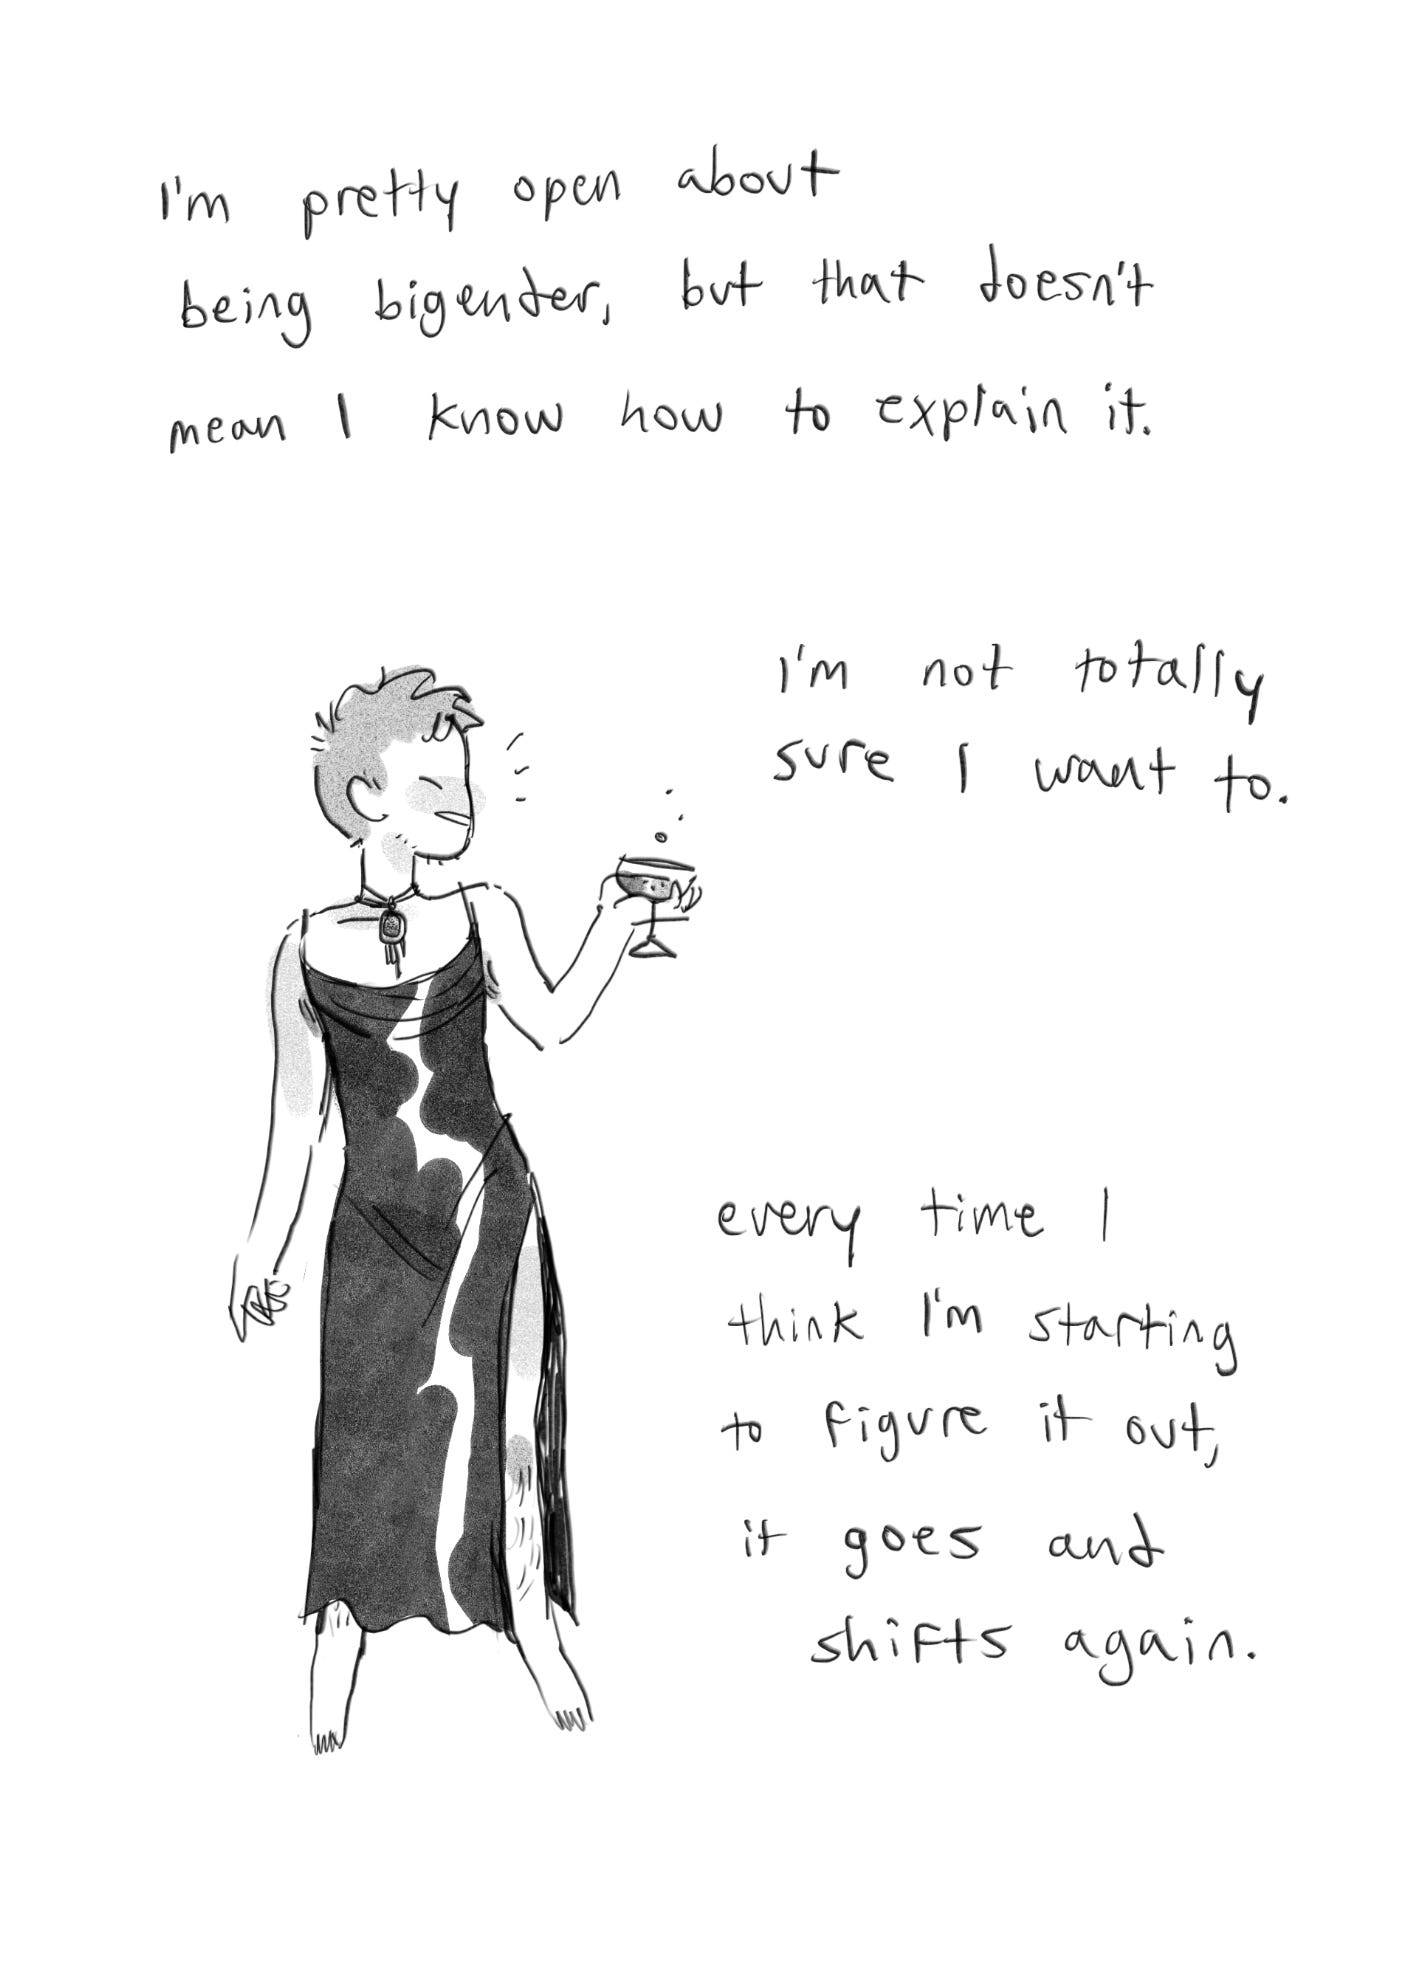 I'm pretty open about
being bigender, but that doesn't
mean I know how to explain it.
I'm not totally
sure I want to.
every time I
think I'm starting
to figure it out,
it goes and
shifts again.